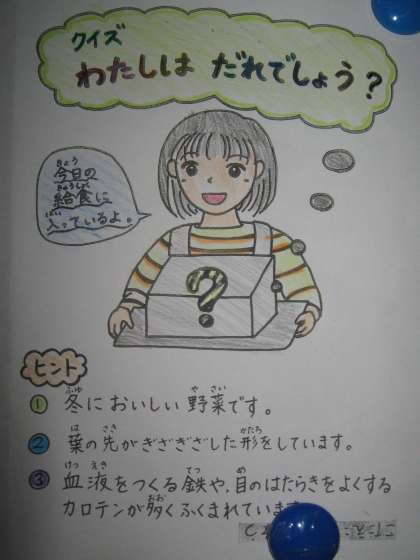 クイズ
わたしは だれでしょう?
今日の
給食に
入っているよ。
?
ヒント
① 冬においしい野菜です。
② 葉の先がぎざぎざした形をしています。
③ 血液をつくる鉄や、目のはたらきをよくする
カロテンが多くふくまれています
こたえ